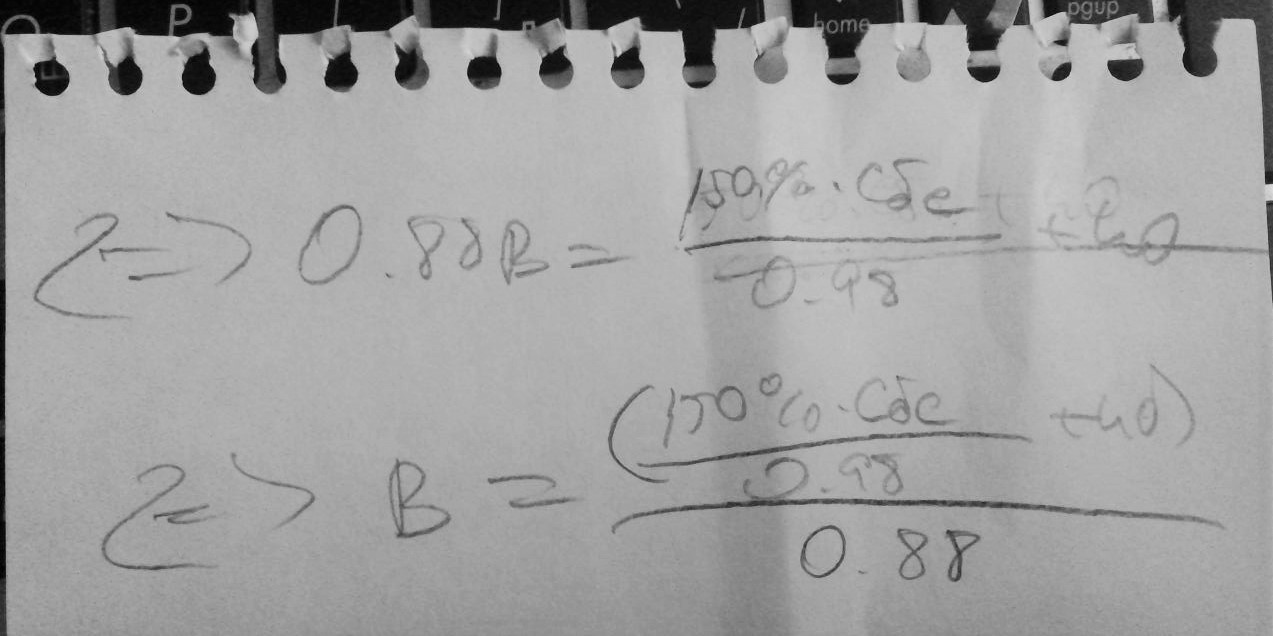 P home pgup
<=> 0.88B = 150% . Cốc / 0.98 + 40
<=> B = (150% . Cốc / 0.98 + 40) / 0.88